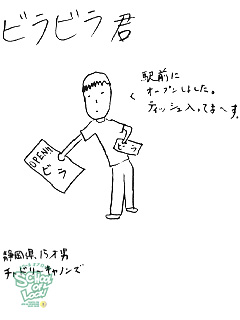 ビラビラ君
駅前に
オープンしました。
ティッシュ入ってまーす。
OPEN!!
ビラ
ビラ
静岡県、15才男
チャービリーキャノンズ
SCHOOL
OF
LOCK!